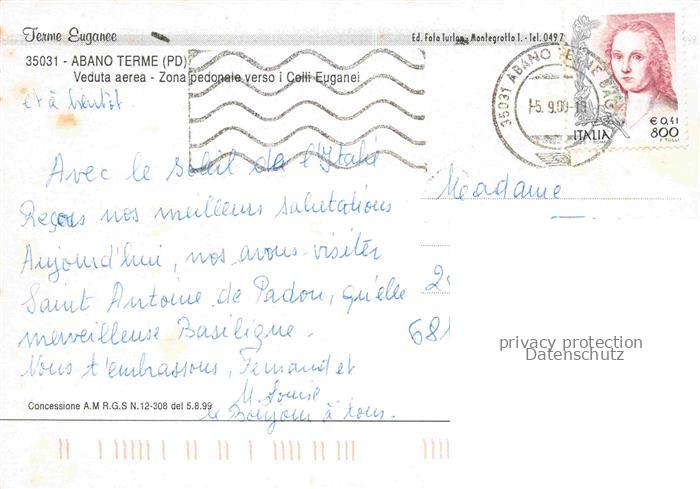 Terme Euganee
Ed. Foto Turlon - Montegrotto T. - Tel. 049 7
35031 - ABANO TERME (PD)
Veduta aerea - Zona pedonale verso i Colli Euganei
35031 ABANO TERME
-5. 9.00-1
€ 0,41
ITALIA 800
et à bientôt.
Avec le soleil de l'Italie
Reçois nos meilleurs salutations
Aujourd'hui, nos avons visiter
Saint Antoine de Padou, qu'elle
merveilleuse Basiligue.
Nous t'embrassons, Fernand et
M. Louise
le Bonjour à tous.
Madame
2
681
privacy protection
Datenschutz
Concessione A.M R.G.S N.12-308 del 5.8.99